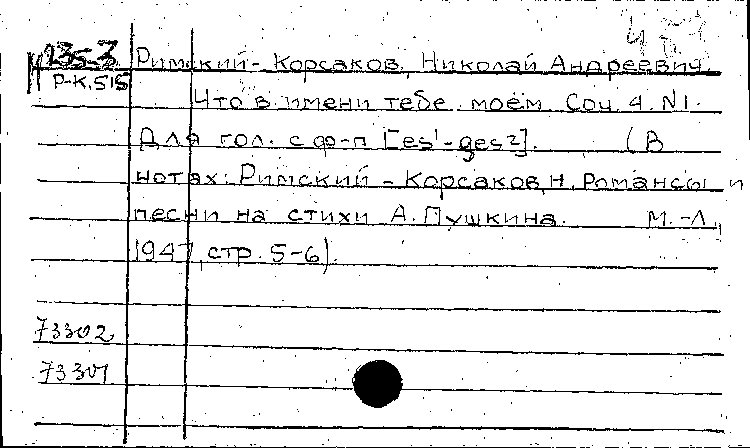 235-3 Римский-Корсаков, Николай Андреевич.
Р-К.515
Что в имени тебе моём. Соч. 4. N1.
Для гол. с ф-п [es¹-ges²]. (В
нотах: Римский-Корсаков, Н. Романсы и
песни на стихи А. Пушкина. М.-Л.,
1947, стр. 5-6).
73302
73301